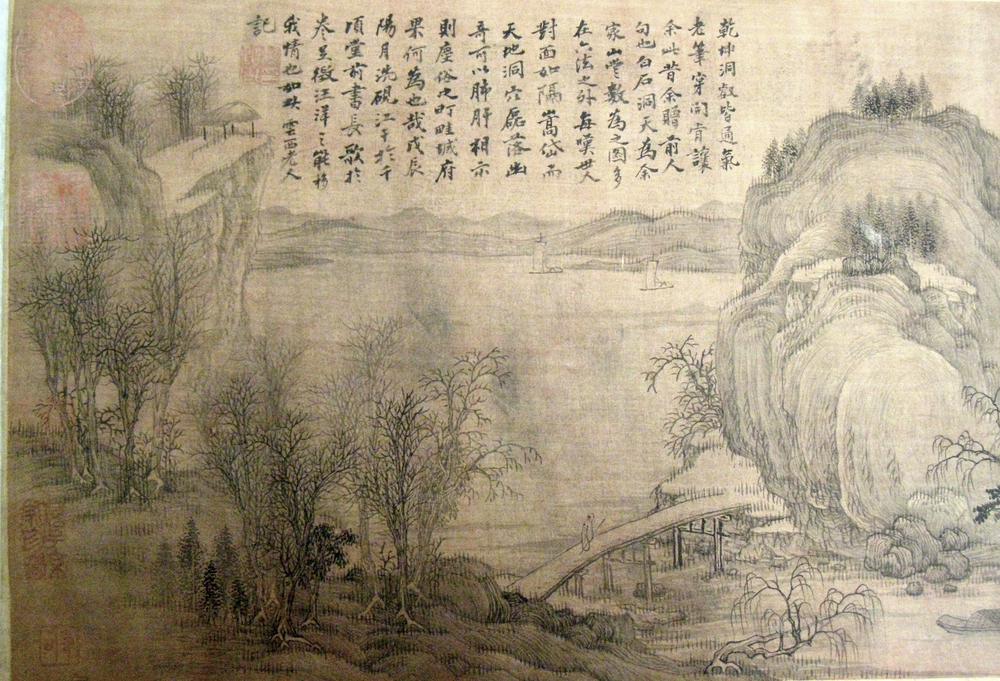 乾坤洞設皆通氣
老筆穿開肯讓
余此昔余贈前人
句也白石洞天為余
家山豐數為之圖多
在六法之外每嘆世人
對面如隔嵩岱而
天地洞穴磊落幽
奇可以肺肝相示
則塵俗之町畦城府
果何為也哉戊辰
陽月洗硯江干於千
頃堂前書長歌於
卷足徵汪洋之能移
我情也如此雲西老人
記